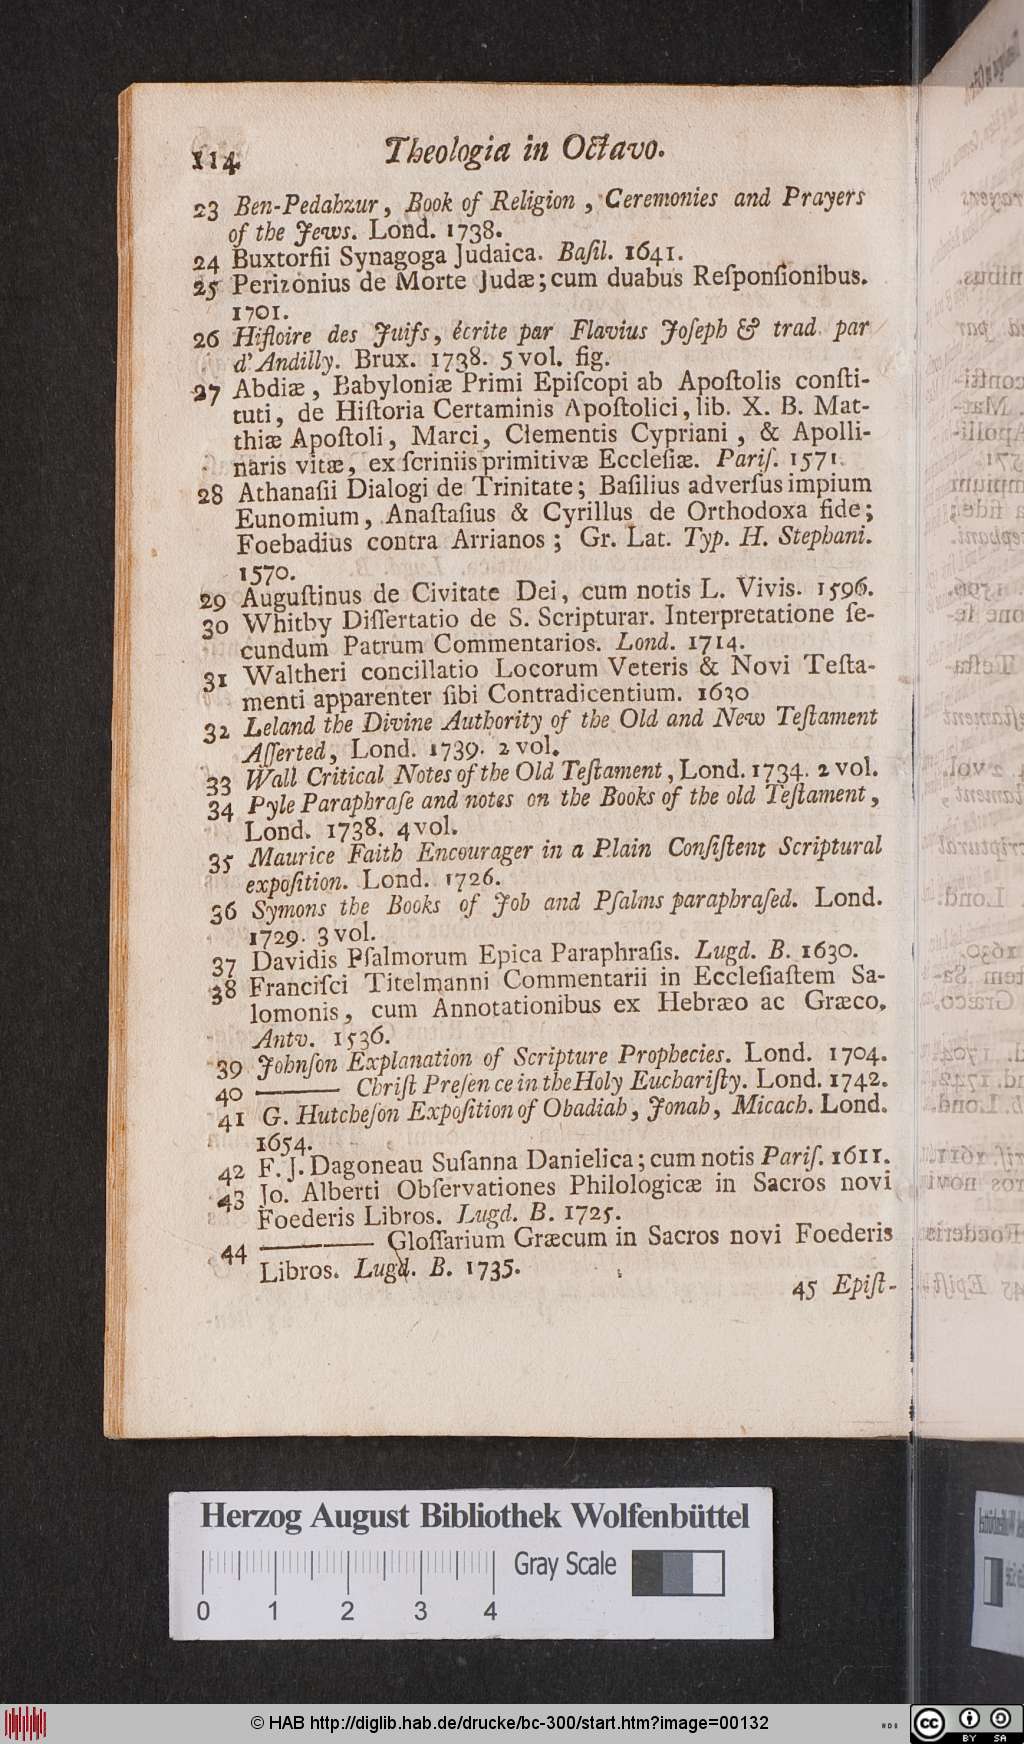 114 Theologia in Octavo.
23 Ben-Pedahzur, Book of Religion, Ceremonies and Prayers
of the Jews. Lond. 1738.
24 Buxtorfii Synagoga Judaica. Baſil. 1641.
25 Perizonius de Morte Judæ; cum duabus Reſponſionibus.
1701.
26 Hiſtoire des Juifs, écrite par Flavius Joſeph & trad par
d'Andilly. Brux. 1738. 5 vol. fig.
27 Abdiæ, Babyloniæ Primi Epiſcopi ab Apoſtolis conſti-
tuti, de Hiſtoria Certaminis Apoſtolici, lib. X. B. Mat-
thiæ Apoſtoli, Marci, Clementis Cypriani, & Apolli-
naris vitæ, ex ſcriniis primitivæ Eccleſiæ. Pariſ. 1571.
28 Athanaſii Dialogi de Trinitate; Baſilius adverſus impium
Eunomium, Anaſtaſius & Cyrillus de Orthodoxa fide;
Foebadius contra Arrianos; Gr. Lat. Typ. H. Stephani.
1570.
29 Auguſtinus de Civitate Dei, cum notis L. Vivis. 1596.
30 Whitby Diſſertatio de S. Scripturar. Interpretatione ſe-
cundum Patrum Commentarios. Lond. 1714.
31 Waltheri concillatio Locorum Veteris & Novi Teſta-
menti apparenter ſibi Contradicentium. 1630
32 Leland the Divine Authority of the Old and New Teſtament
Aſſerted, Lond. 1739. 2 vol.
33 Wall Critical Notes of the Old Teſtament, Lond. 1734. 2 vol.
34 Pyle Paraphraſe and notes on the Books of the old Teſtament,
Lond. 1738. 4 vol.
35 Maurice Faith Encourager in a Plain Conſiſtent Scriptural
expoſition. Lond. 1726.
36 Symons the Books of Job and Pſalms paraphraſed. Lond.
1729. 3 vol.
37 Davidis Pſalmorum Epica Paraphraſis. Lugd. B. 1630.
38 Franciſci Titelmanni Commentarii in Eccleſiaſtem Sa-
lomonis, cum Annotationibus ex Hebræo ac Græco.
Antv. 1536.
39 Johnſon Explanation of Scripture Prophecies. Lond. 1704.
40 ——— Chriſt Preſen ce in the Holy Euchariſty. Lond. 1742.
41 G. Hutcheſon Expoſition of Obadiah, Jonah, Micach. Lond.
1654.
42 F. J. Dagoneau Suſanna Danielica; cum notis Pariſ. 1611.
43 Jo. Alberti Obſervationes Philologicæ in Sacros novi
Foederis Libros. Lugd. B. 1725.
44 ——— Gloſſarium Græcum in Sacros novi Foederis
Libros. Lugd. B. 1735.
45 Epiſt-
Herzog August Bibliothek Wolfenbüttel
Gray Scale
0 1 2 3 4
© HAB http://diglib.hab.de/drucke/bc-300/start.htm?image=00132
cc BY SA